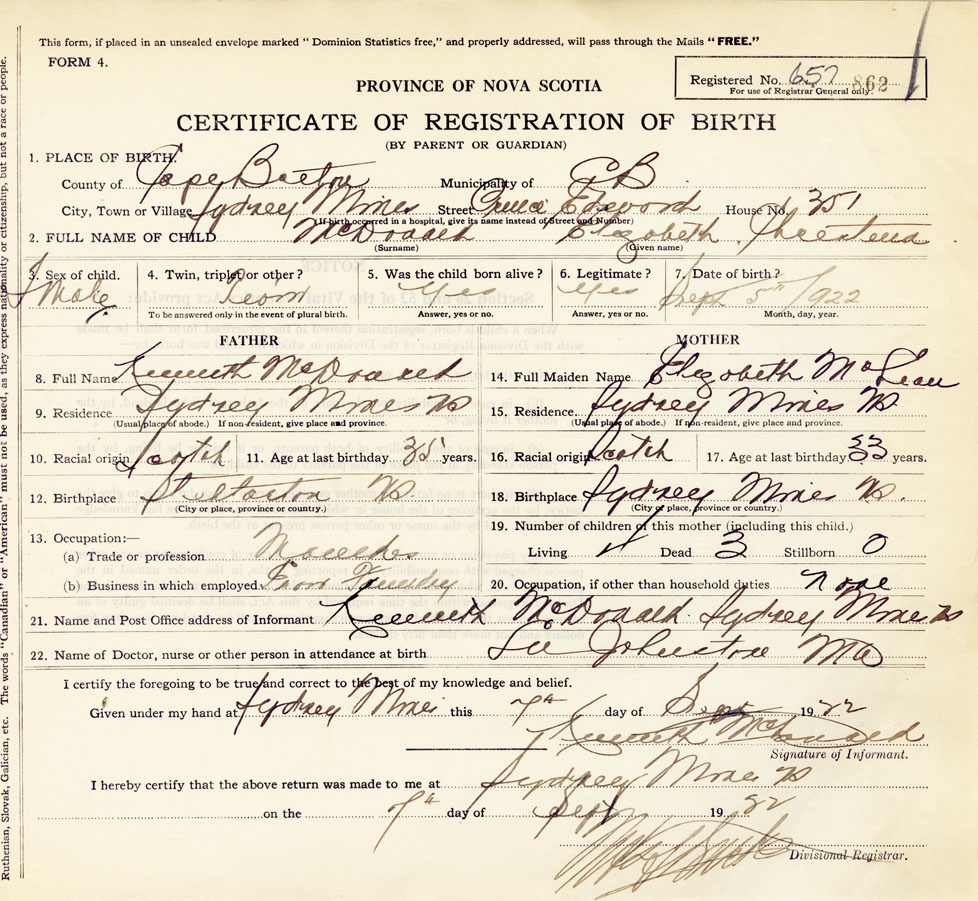 This form, if placed in an unsealed envelope marked "Dominion Statistics free," and properly addressed, will pass through the Mails "FREE."
FORM 4.
Registered No. 657 862
For use of Registrar General only.
PROVINCE OF NOVA SCOTIA
CERTIFICATE OF REGISTRATION OF BIRTH
(BY PARENT OR GUARDIAN)
1. PLACE OF BIRTH.
County of Cape Breton Municipality of C B
City, Town or Village Sydney Mines Street Edword House No. 351
If birth occurred in a hospital, give its name instead of Street and Number)
2. FULL NAME OF CHILD McDonald Elizabeth
(Surname) (Given name)
3. Sex of child. 4. Twin, triplet or other? 5. Was the child born alive? 6. Legitimate? 7. Date of birth?
Yes Yes Sept 5th 1922
To be answered only in the event of plural birth. Answer, yes or no. Answer, yes or no. Month, day, year.
FATHER MOTHER
8. Full Name Kenneth McDonald 14. Full Maiden Name Elizabeth McLean
9. Residence Sydney Mines NS 15. Residence. Sydney Mines NS
(Usual place of abode.) If non-resident, give place and province. (Usual place of abode.) If non-resident, give place and province.
10. Racial origin Scotch 11. Age at last birthday 35 years. 16. Racial origin Scotch 17. Age at last birthday 33 years.
12. Birthplace NS 18. Birthplace Sydney Mines NS.
(City or place, province or country.) (City or place, province or country.)
13. Occupation:— 19. Number of children of this mother (including this child.)
(a) Trade or profession Living Dead 3 Stillborn 0
(b) Business in which employed 20. Occupation, if other than household duties none
21. Name and Post Office address of Informant Kenneth McDonald Sydney Mines NS
22. Name of Doctor, nurse or other person in attendance at birth Johnston MD
I certify the foregoing to be true and correct to the best of my knowledge and belief.
Given under my hand at Sydney Mines this 7th day of Sept 1922
Kenneth McDonald
Signature of Informant.
I hereby certify that the above return was made to me at Sydney Mines NS
on the 7th day of Sept 1922
Divisional Registrar.
Ruthenian, Slovak, Galician, etc. The words "Canadian" or "American" must not be used, as they express nationality or citizenship, but not a race or people.